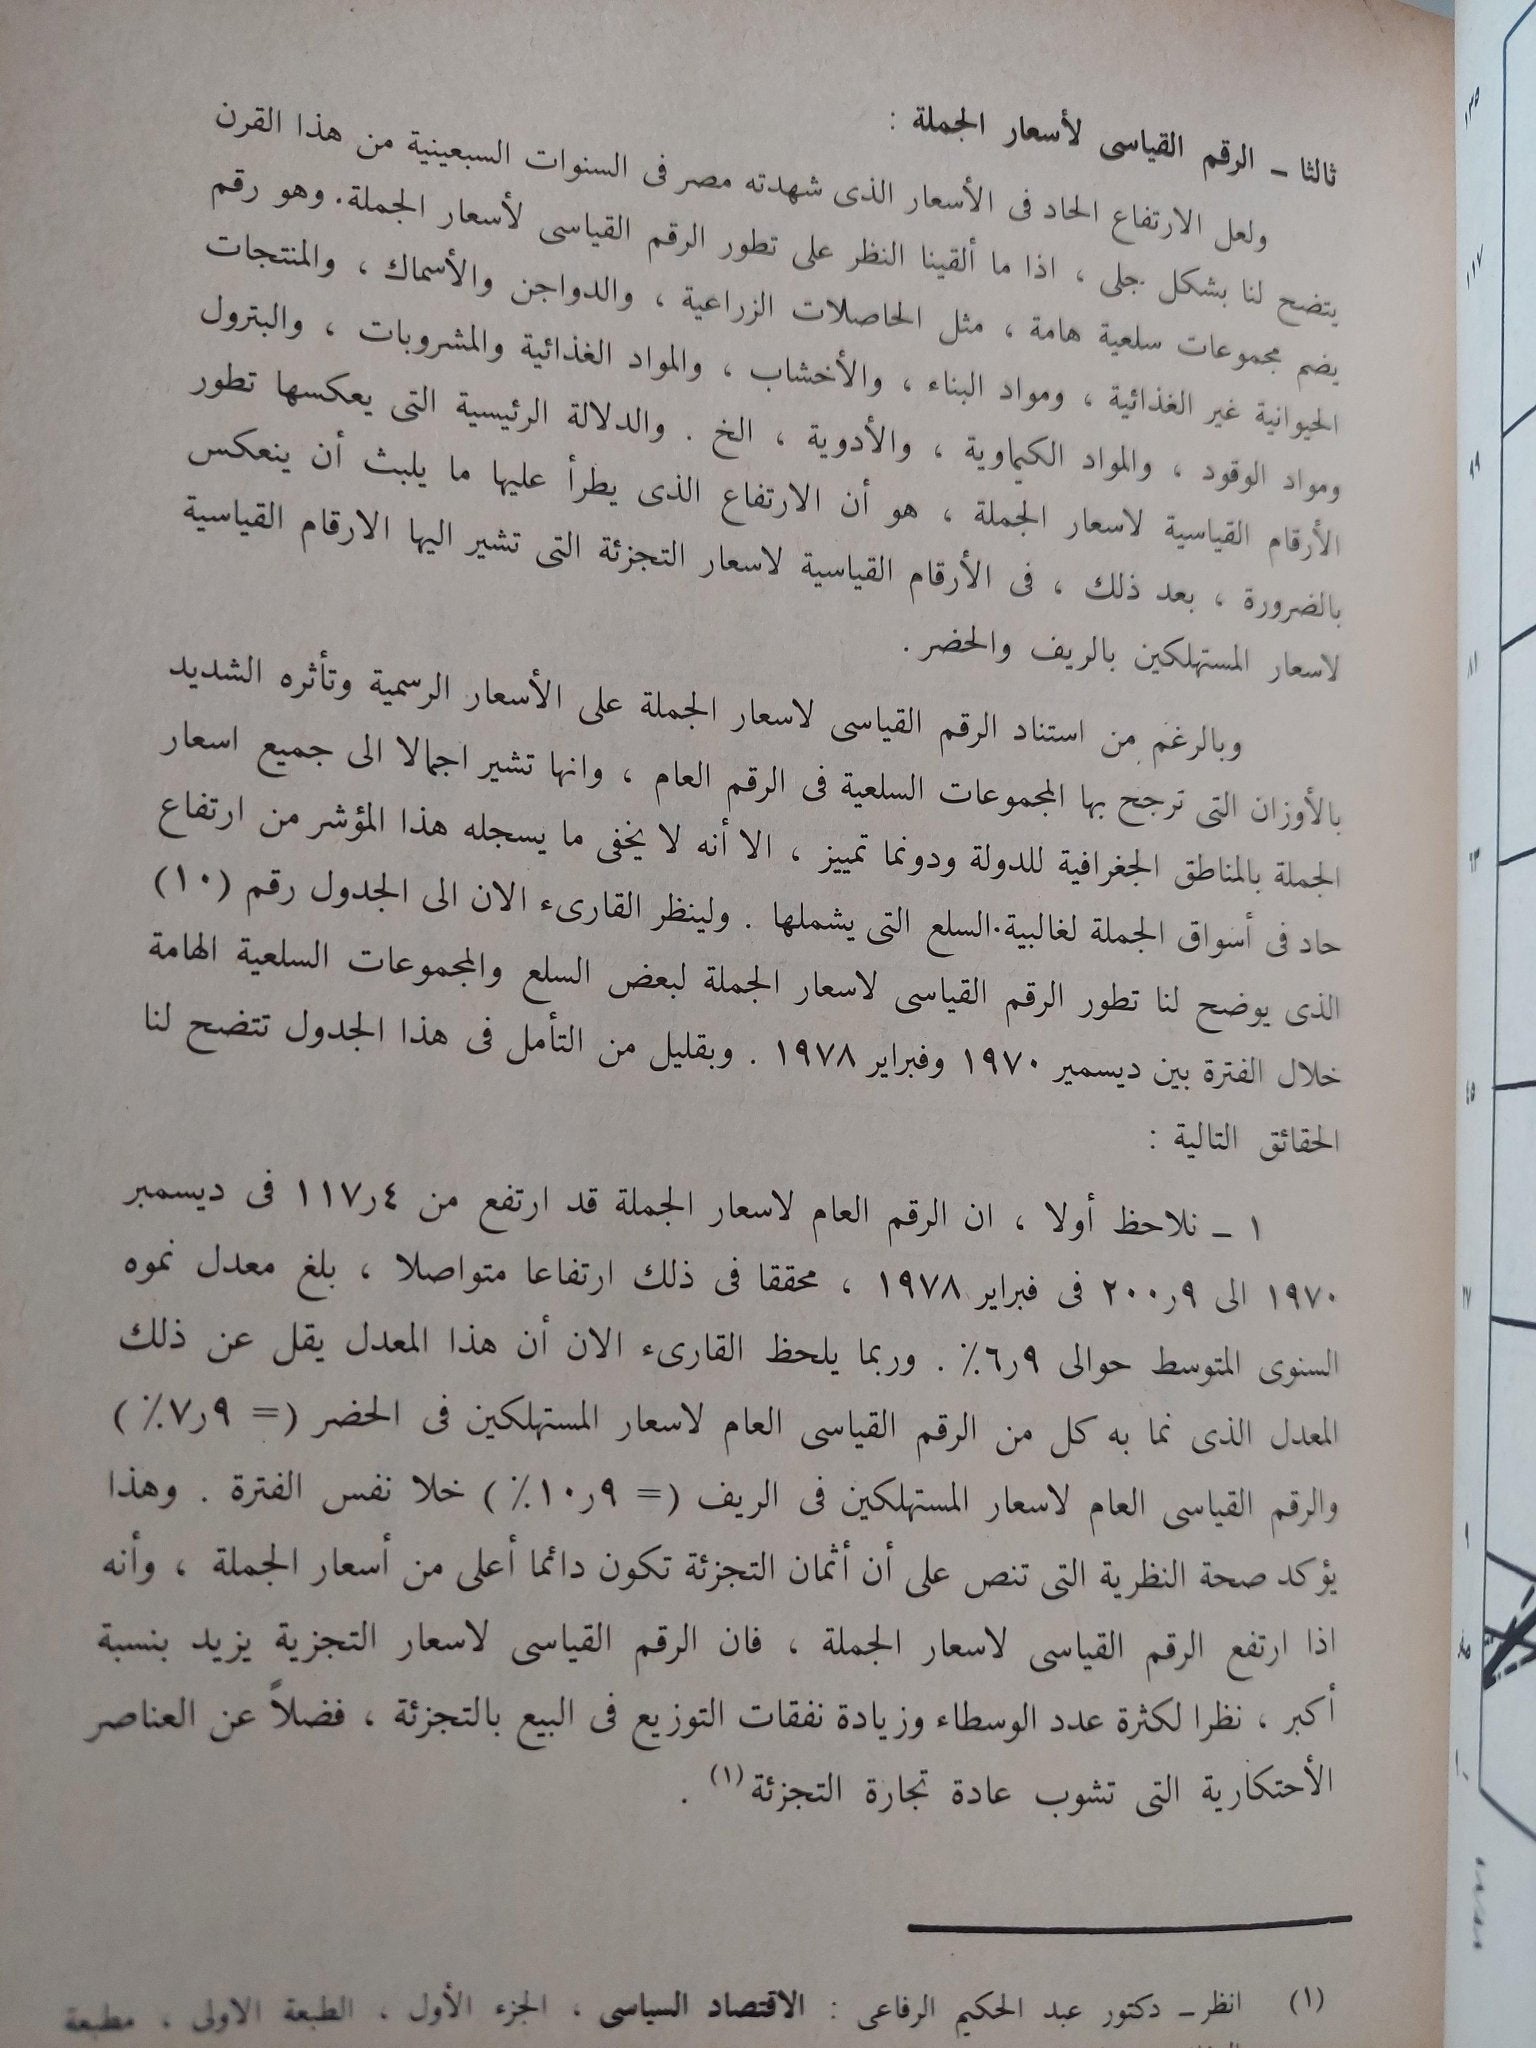 ثالثا ـ الرقم القياسى لأسعار الجملة :
ولعل الارتفاع الحاد فى الأسعار الذى شهدته مصر فى السنوات السبعينية من هذا القرن
يتضح لنا بشكل جلى ، اذا ما ألقينا النظر على تطور الرقم القياسى لأسعار الجملة. وهو رقم
يضم مجموعات سلعية هامة ، مثل الحاصلات الزراعية ، والدواجن والأسماك ، والمنتجات
الحيوانية غير الغذائية ، ومواد البناء ، والأخشاب ، والمواد الغذائية والمشروبات ، والبترول
ومواد الوقود ، والمواد الكيماوية ، والأدوية ، الخ . والدلالة الرئيسية التى يعكسها تطور
الأرقام القياسية لاسعار الجملة ، هو أن الارتفاع الذى يطرأ عليها ما يلبث أن ينعكس
بالضرورة ، بعد ذلك ، فى الأرقام القياسية لاسعار التجزئة التى تشير اليها الارقام القياسية
لاسعار المستهلكين بالريف والحضر .
وبالرغم من استناد الرقم القياسى لاسعار الجملة على الأسعار الرسمية وتأثره الشديد
بالأوزان التى ترجح بها المجموعات السلعية فى الرقم العام ، وانها تشير اجمالا الى جميع اسعار
الجملة بالمناطق الجغرافية للدولة ودونما تمييز ، الا أنه لا يخفى ما يسجله هذا المؤشر من ارتفاع
حاد فى أسواق الجملة لغالبية السلع التى يشملها . ولينظر القارىء الان الى الجدول رقم (١٠)
الذى يوضح لنا تطور الرقم القياسى لاسعار الجملة لبعض السلع والمجموعات السلعية الهامة
خلال الفترة بين ديسمير ١٩٧٠ وفبراير ١٩٧٨ . وبقليل من التأمل فى هذا الجدول تتضح لنا
الحقائق التالية :
١ ـ نلاحظ أولا ، ان الرقم العام لاسعار الجملة قد ارتفع من ٤ر١١٧ فى ديسمبر
١٩٧٠ الى ٩ر٢٠٠ فى فبراير ١٩٧٨ ، محققا فى ذلك ارتفاعا متواصلا ، بلغ معدل نموه
السنوى المتوسط حوالى ٩ر٦٪ . وربما يلحظ القارىء الان أن هذا المعدل يقل عن ذلك
المعدل الذى نما به كل من الرقم القياسى العام لاسعار المستهلكين فى الحضر (= ٩ر٧٪ )
والرقم القياسى العام لاسعار المستهلكين فى الريف (= ٩ر١٠٪ ) خلا نفس الفترة . وهذا
يؤكد صحة النظرية التى تنص على أن أثمان التجزئة تكون دائما أعلى من أسعار الجملة ، وأنه
اذا ارتفع الرقم القياسى لاسعار الجملة ، فان الرقم القياسى لاسعار التجزية يزيد بنسبة
أكبر ، نظرا لكثرة عدد الوسطاء وزيادة نفقات التوزيع فى البيع بالتجزئة ، فضلاً عن العناصر
الأحتكارية التى تشوب عادة تجارة التجزئة (١) .
(١) انظر ـ دكتور عبد الحكيم الرفاعى : الاقتصاد السياسى ، الجزء الأول ، الطبعة الاولى ، مطبعة
١١٧
٨١
٤٥